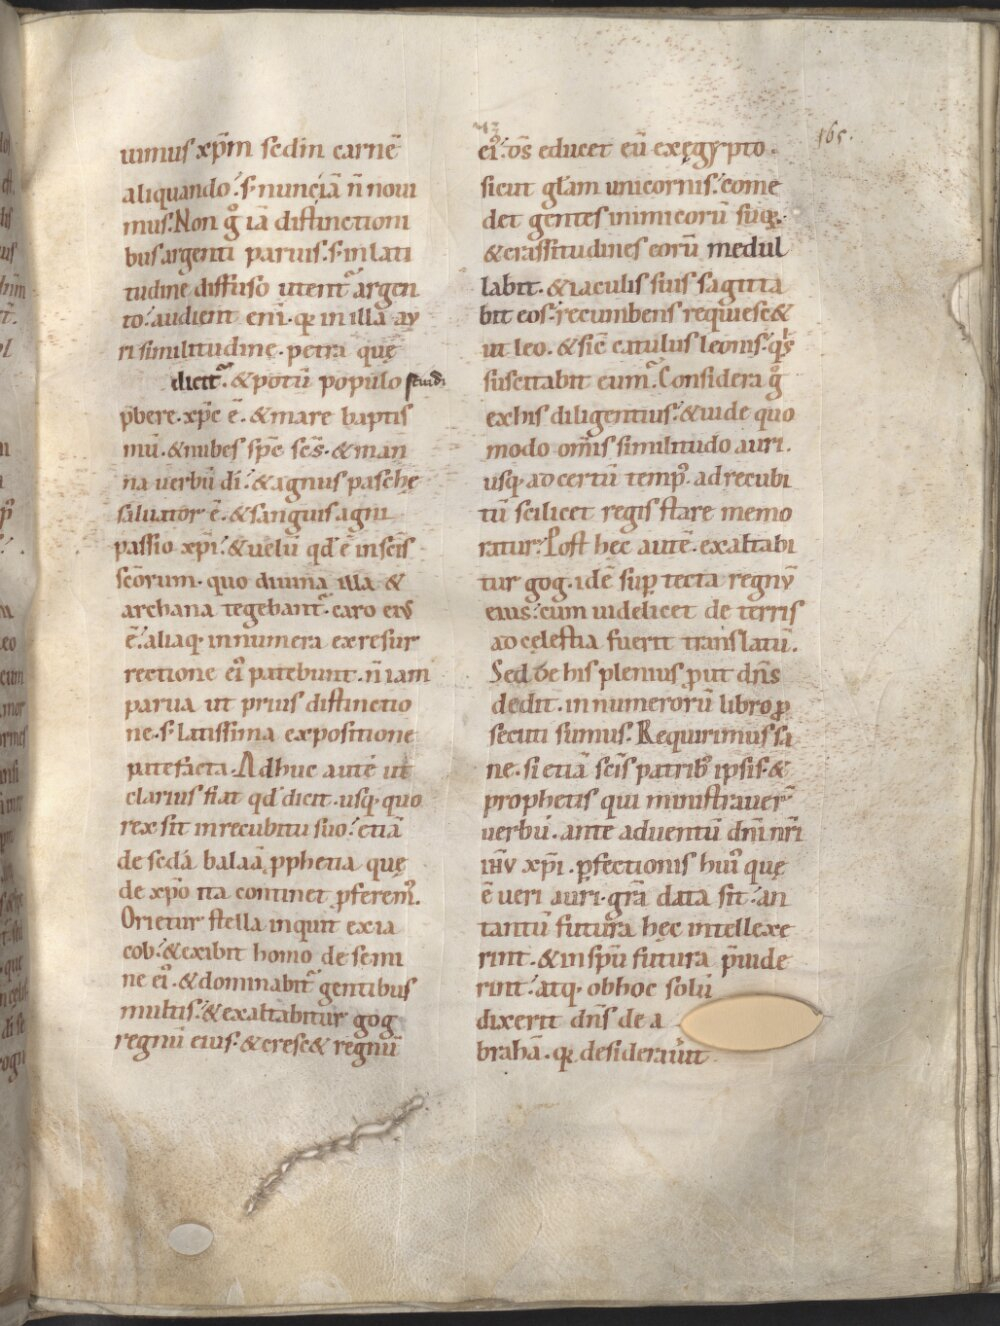 165.
uimus xp̄m sed in carnē
aliquando. s; nunc iā n̄ noui
mus. Non g̊ iā distinctioni
bus argenti paruis. s; in lati
tudine diffuso utent᷑ argen
to. audient eni. qꝛ in illa ay
ri similitudine. petra quę
dicit᷑. & potū populo
p̄bere. xp̄c ē. & mare baptis
mū. & nubes sp̄c sc̄s. & man
na uerbū dī. & agnus paschę
saluator ē. & sanguis agni
passio xp̄i. & uelū qd̄ ē in sc̄is
sc̄orum. quo diuina illa &
archana tegebant᷑. caro eiꝰ
ē. aliaq; innumera ex resur
rectione eiꝰ patebunt. n̄ iam
parua ut prius distinctio
ne. s; latissima expositione
patefacta. Adhuc autē ut
clarius fiat qd̄ dicit. usq; quo
rex sit in recubitu suo. etiā
de sedā balaā p̱phetia quę
de xp̄o ita continet p̱feremꝰ.
Orietur stella inquit ex ia
cob. & exibit homo de semi
ne eiꝰ. & dominabit᷑ gentibus
multis. & exaltabitur gog
regnū eius. & cresc& regnū
eiꝰ. ds̄ educet eū ex ęgypto.
sicut gl̄am unicornis. come
det gentes inimicorū suoꝝ.
& crassitudines eorū medul
labit. & iaculis suis sagitta
bit eos. recumbens requiesc&
ut leo. & sic̄ catulus leonis. q̇s
suscitabit eum᷑. Considera g̊
ex his diligentius. & uide quo
modo om̄is similitudo auri.
usq; ad certū tempꝰ. ad recubi
tū scilicet regis stare memo
ratur. Post hęc autē. exaltabi
tur gog. idē sup̱ tecta regnū
eius. cum uidelicet de terris
ad cęlestia fuerit translatū.
Sed de his plenius p̱ut dn̄s
dedit. in numerorū libro p̱
secuti sumus. Requirimus sa
ne. si etiā sc̄is patribꝰ ipsis. &
prophetis qui ministrauer᷑
uerbū. ante aduentū dn̄i nr̄i
ihu xp̄i. p̱fectionis huiꝰ quę
ē ueri auri. gr̄a data sit. an
tantū futura hęc intellexe
rint. & in sp̄u futura p̄uide
rint. atq; ob hoc solū
dixerit dn̄s de a
brahā. qꝛ desiderauit